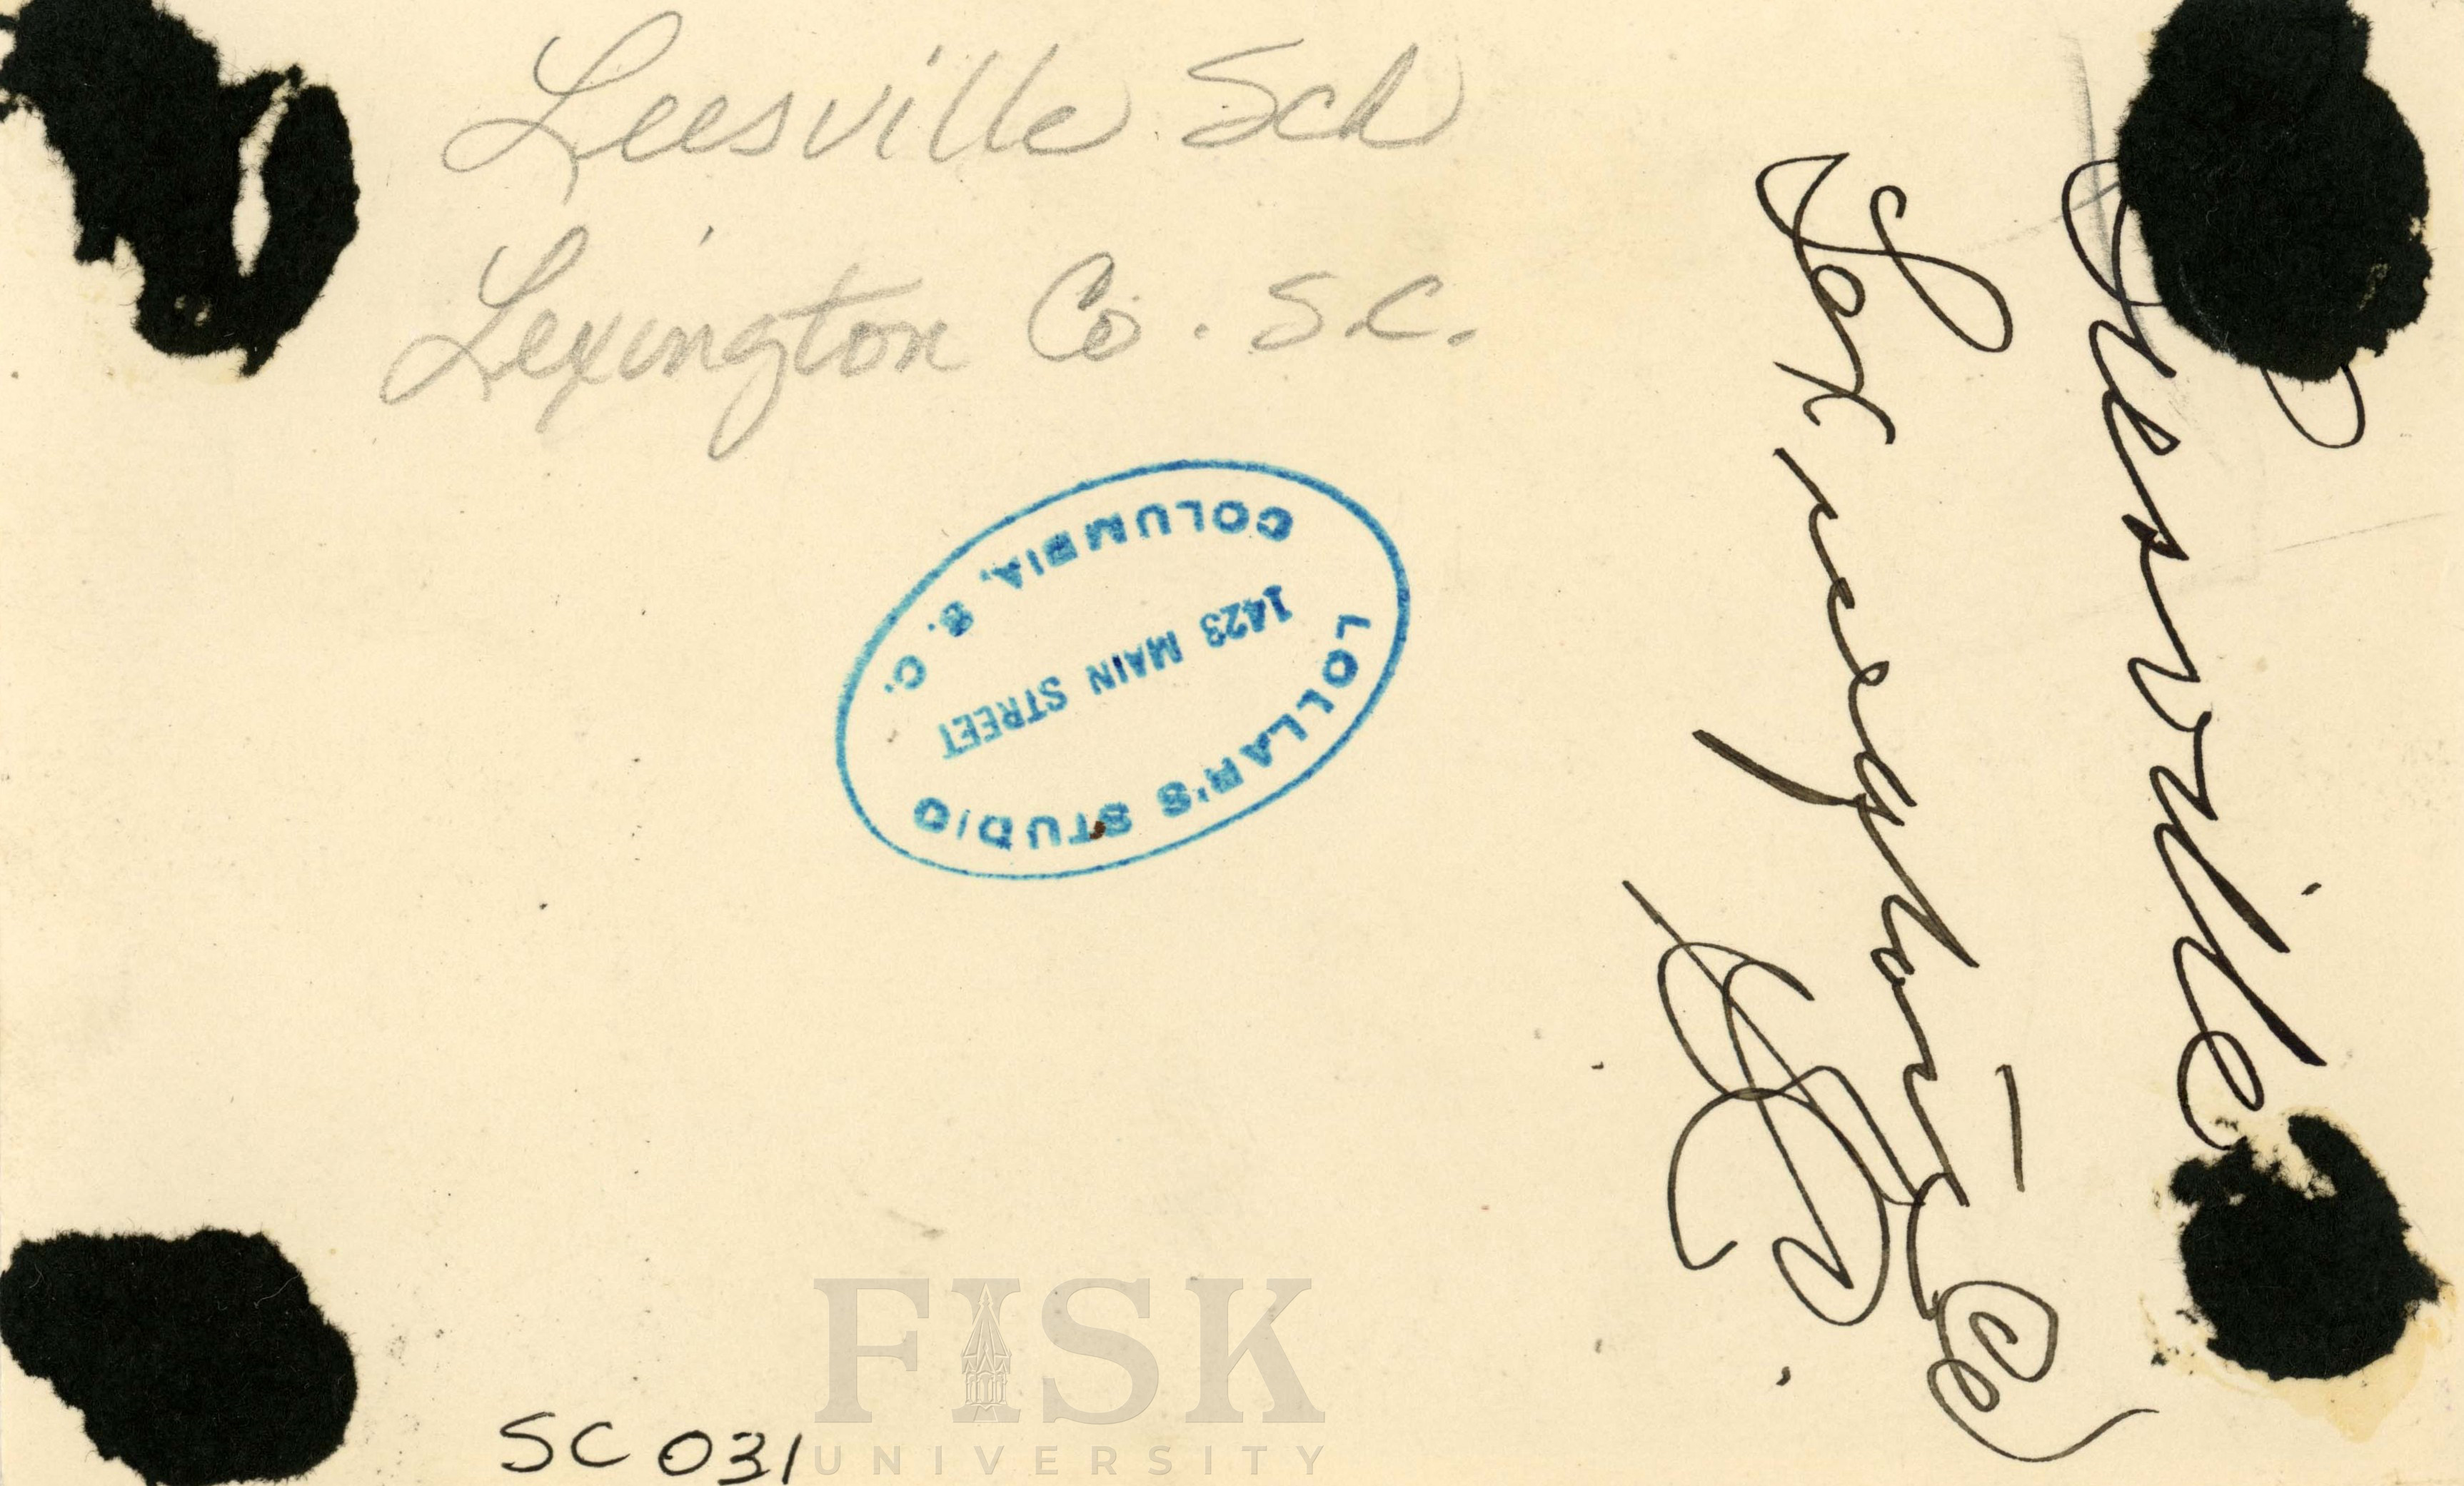 Leesville Sch
Lexington Co. S.C.
LOLLAR'S STUDIO
1423 MAIN STREET
COLUMBIA, S. C.
Leesville
Lexington Co
S.C.
SC 031
FISK
UNIVERSITY